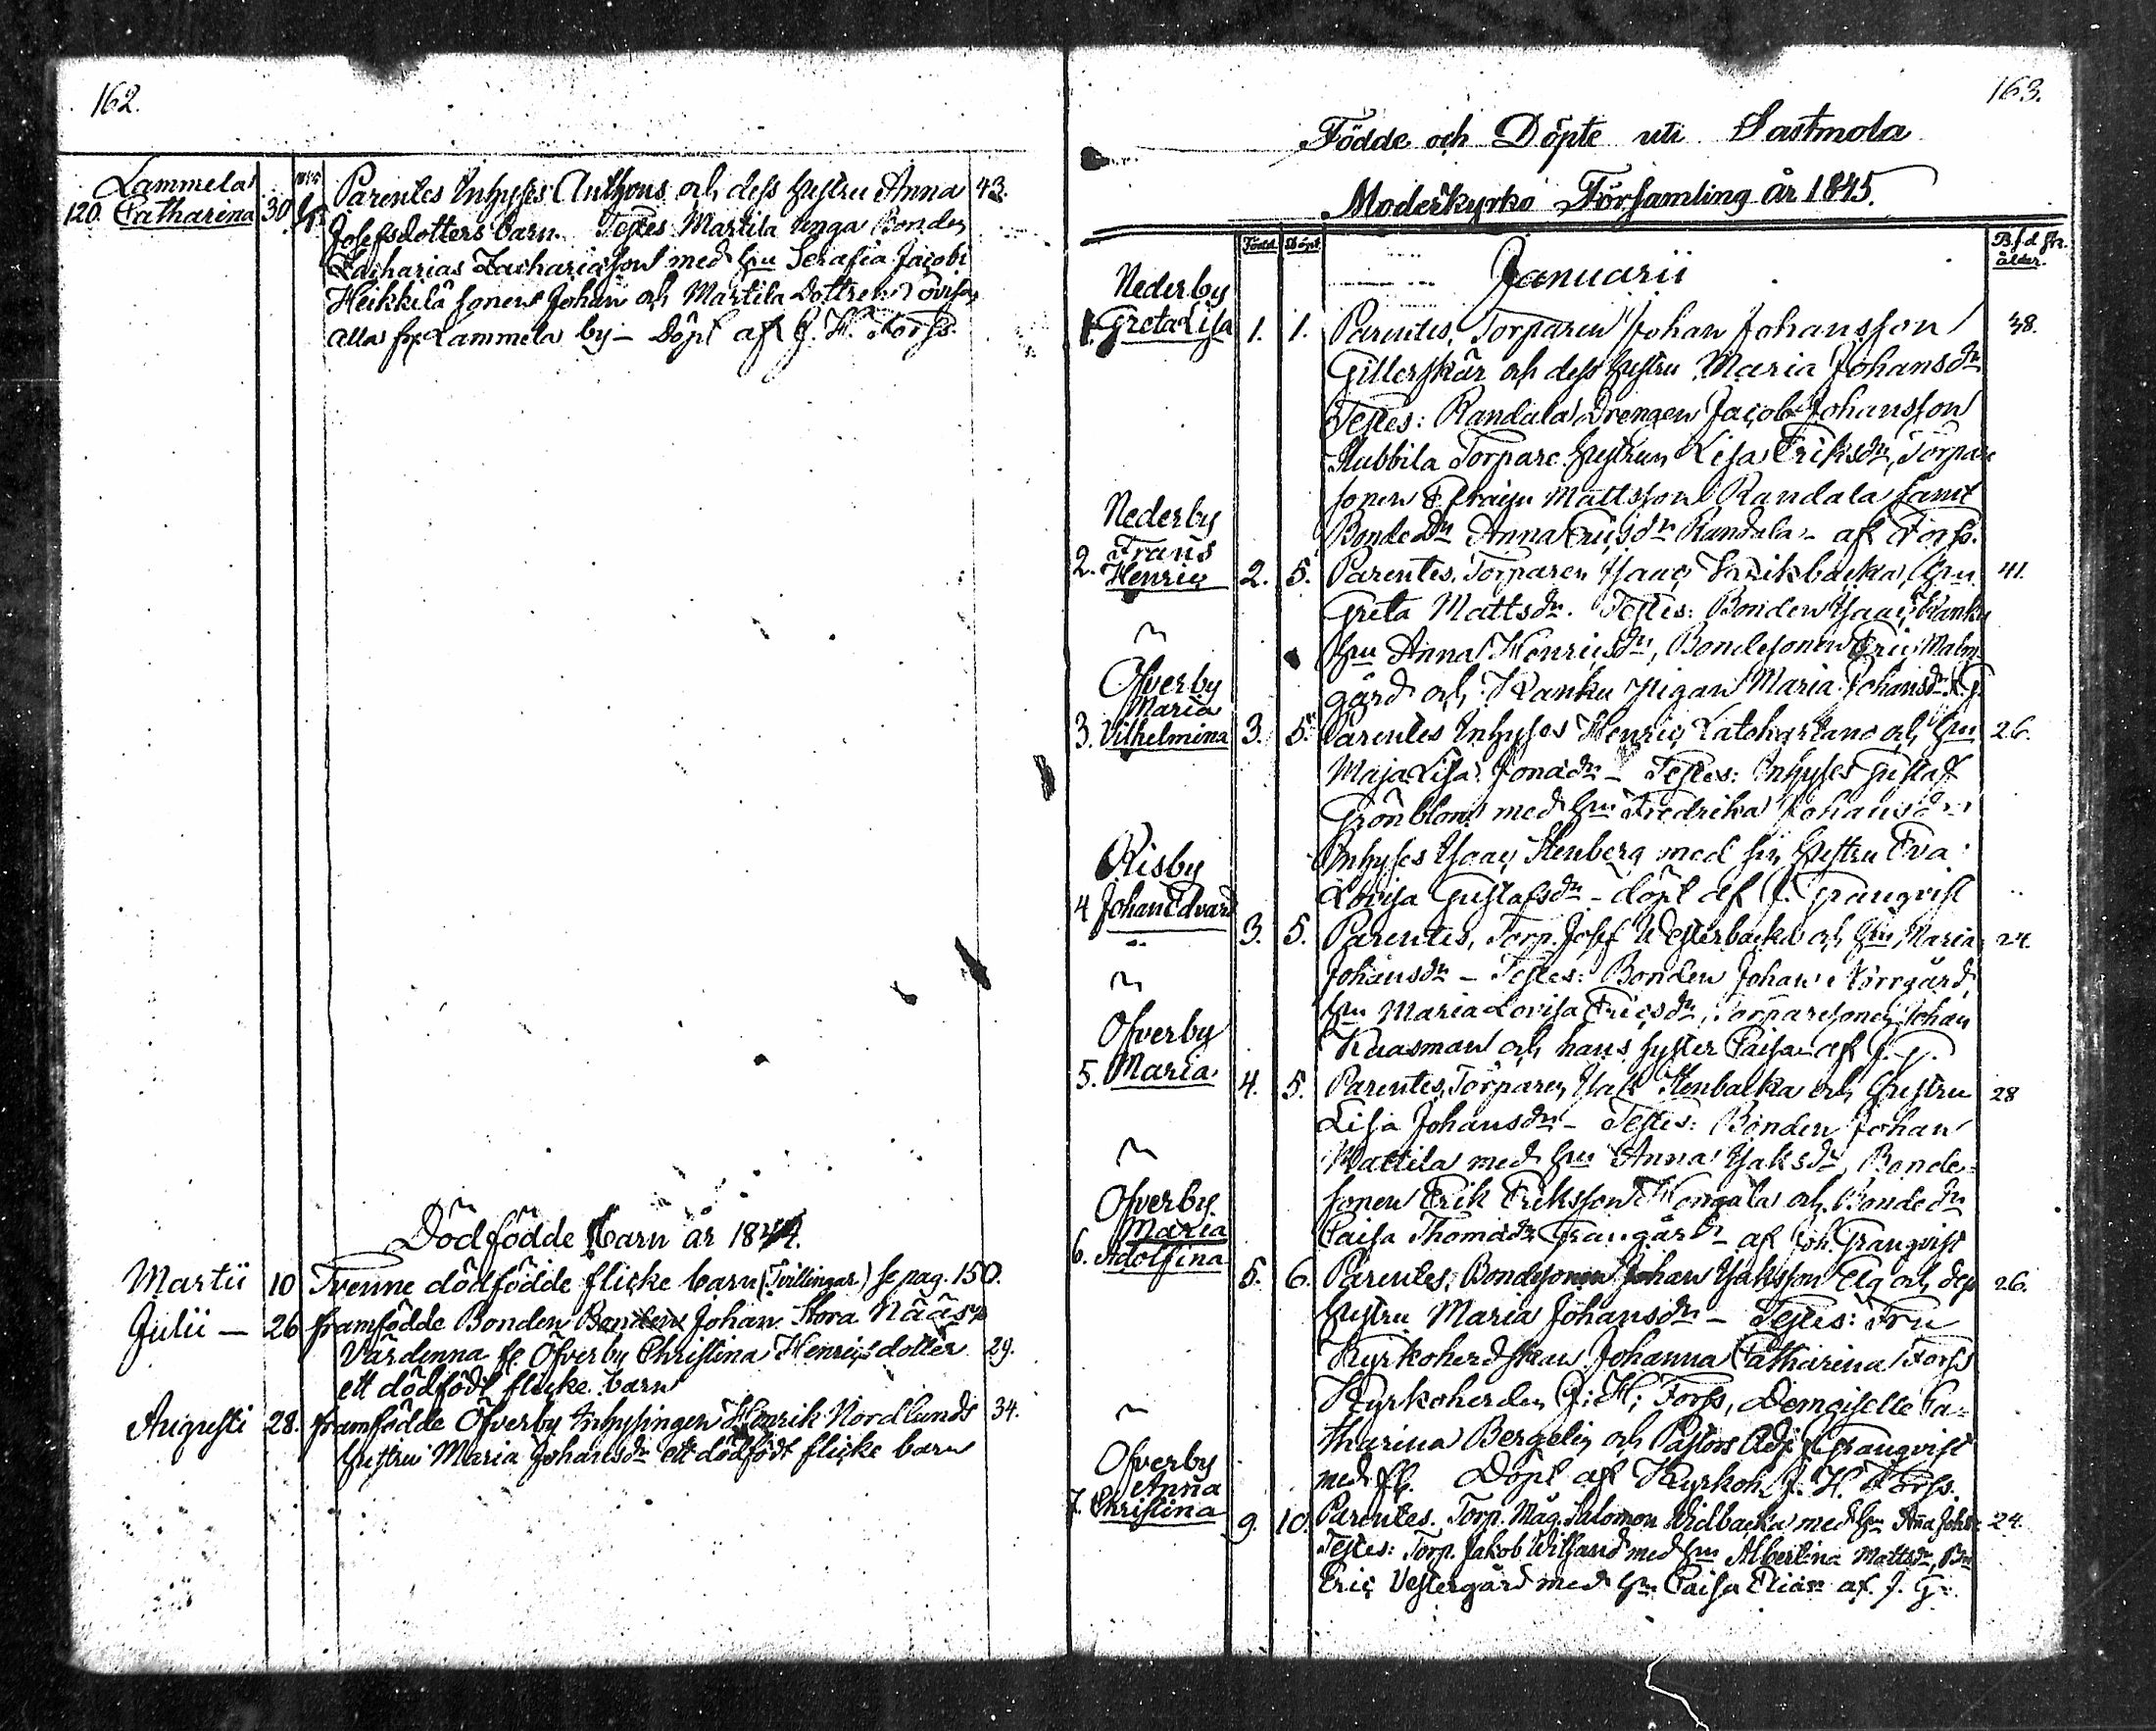 162.
Lammela
120. Catharina 30 Parentes Inhyses Anthons och dess hustru Anna 43.
Josefsdotters barn. Testes Martila unga Bonden
Zacharias Zachariasson med Hu Serafia Jacobs
Heikkilä sonen Johan och Martila Dottren Lovisa
alla fr. Lammela by – Döpt af J. H. Forss.
Dödfödde barn år 1844.
Martii 10 Tvenne dödfödde flicke barn (Tvillingar) se pag. 150.
Julii – 26 framfödde Bonden Johan Stora Nääs
Värdinna fr. Öfverby Christina Henricsdotter 29.
ett dödfödt flicke barn
Augusti 28. framfödde Öfverby Inhysingen Henrik Nordlunds 34.
hustru Maria Johansdr ett dödfödt flicke barn
163.
Födde och Döpte uti Sastmola
Moderkyrko Församling år 1845.
Född. Döpt. ålder.
Januarii
Nederby
1. Greta Lisa 1. 1. Parentes, Torparen Johan Johansson 38.
Gillerskär och dess hustru Maria Johansdr
Testes: Randala Drengen Jacob Johansson
Stubbila Torpare hustrun Lisa Eriksdr, Torpare
sonen Efraim Mattsson Randala samt
Bonde dr Anna Ericsdr Randala – af Forss.
Nederby
2. Frans
Henric 2. 5. Parentes. Torparen Isaac Hu 41.
Greta Mattsdr. Testes: Bonden Isaac Kanku
Hu Anna Henricsdr, Bondesonen Eric Malm
gård och Kanku pigan Maria Johansdr J. G.
Öfverby
Maria
3. Vilhelmina 3. 5. Parentes Inhyses Henric och Hu 26.
Maja Lisa Jonadr – Testes: Inhyses Gustaf
Grönblom med Hu Fredrika Johansdr
Inhyses Isaac Stenberg med sin hustru Eva
Lovisa Gustafsdr – döpt af J. Granqvist
Risby
4 Johan Edvard 3. 5. Parentes, Torp. Josef Westerbacka och Hu Maria 24.
Johansdr – Testes: Bonden Johan Norrgård,
Hu Maria Lovisa Ericsdr, Torparesonen Johan
Kaasman och hans syster Caisa af J. G.
Öfverby
5. Maria 4. 5. Parentes, Torparen Isak Stenbacka och hustru 28
Lisa Johansdr – Testes: Bonden Johan
Rattila med Hu Anna Isaksdr, Bonde
sonen Erik Eriksson Kongala och Bonde dr
Caisa Thomadr Grangård – af Joh. Granqvist
Öfverby
Maria
6. Adolfina 5. 6. Parentes, Bondesonen Johan Isaksson Elg och dess 26.
hustru Maria Johansdr – Testes: Fru
Kyrkoherdskan Johanna Catharina Forss
Kyrkoherden J: H: Forss, Demoiselle Ca-
tharina Bergelin och Pastors Adj. J. Granqvist
med fl. Döpt af Kyrkoh. J. H. Forss.
Öfverby
Anna
7. Christina 9. 10. Parentes. Torp. Måg. Salomon Vidbacka med Hu Anna Johsdr 24.
Testes: Torp. Jakob Wilsand med Hu Albertina Mattsdr, Bn
Eric Vestergård med Hu Caisa Eliædr af J. G.